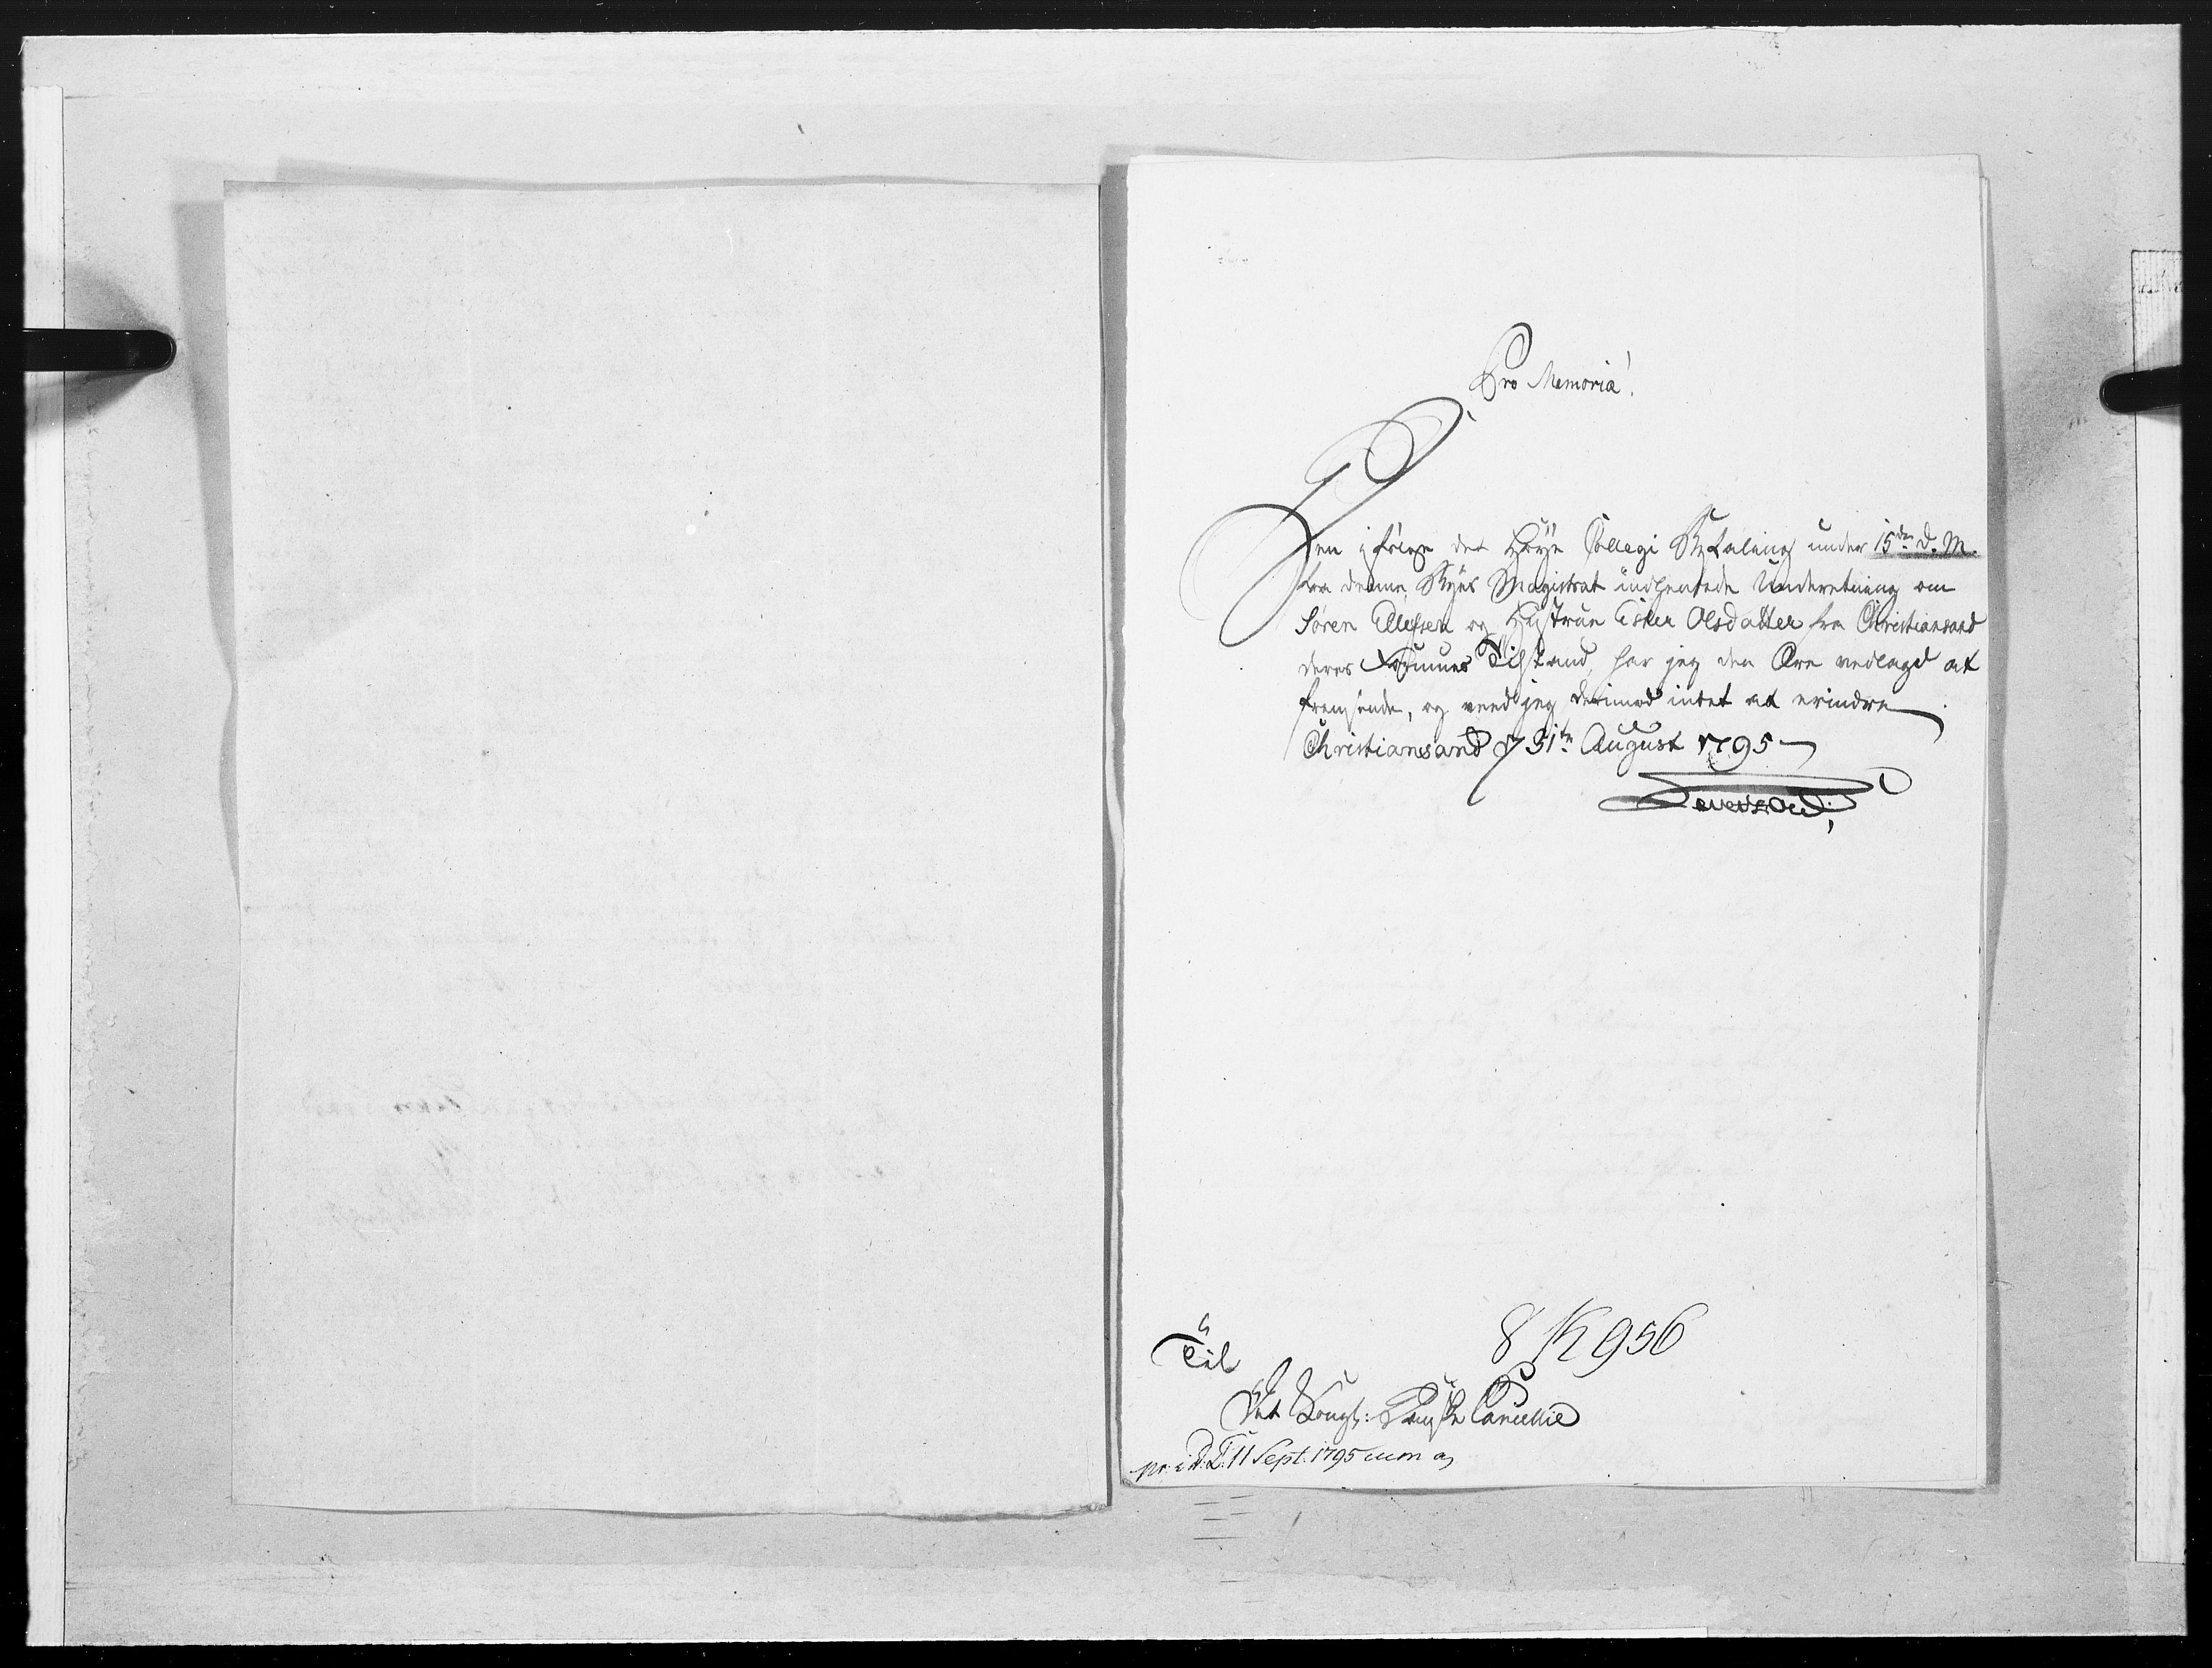 Pro Memoria!
Den i følge det Høye Collegi Befaling under 15de d. M.
fra denne Byes Magistrat indhentede Underretning om
Søren Ellefsen og Hustrue Olsdatter fra Christiansand
deres Formues Tilstand, har jeg den Ære vedlagd at
fremsende, og veed jeg derimod intet at erindre
Christiansand d 31te August 1795
Levetzow
8 K 956
Til
Det Kongl: Danske Cancellie
pr. i D. C. 11 Sept. 1795 cum a,